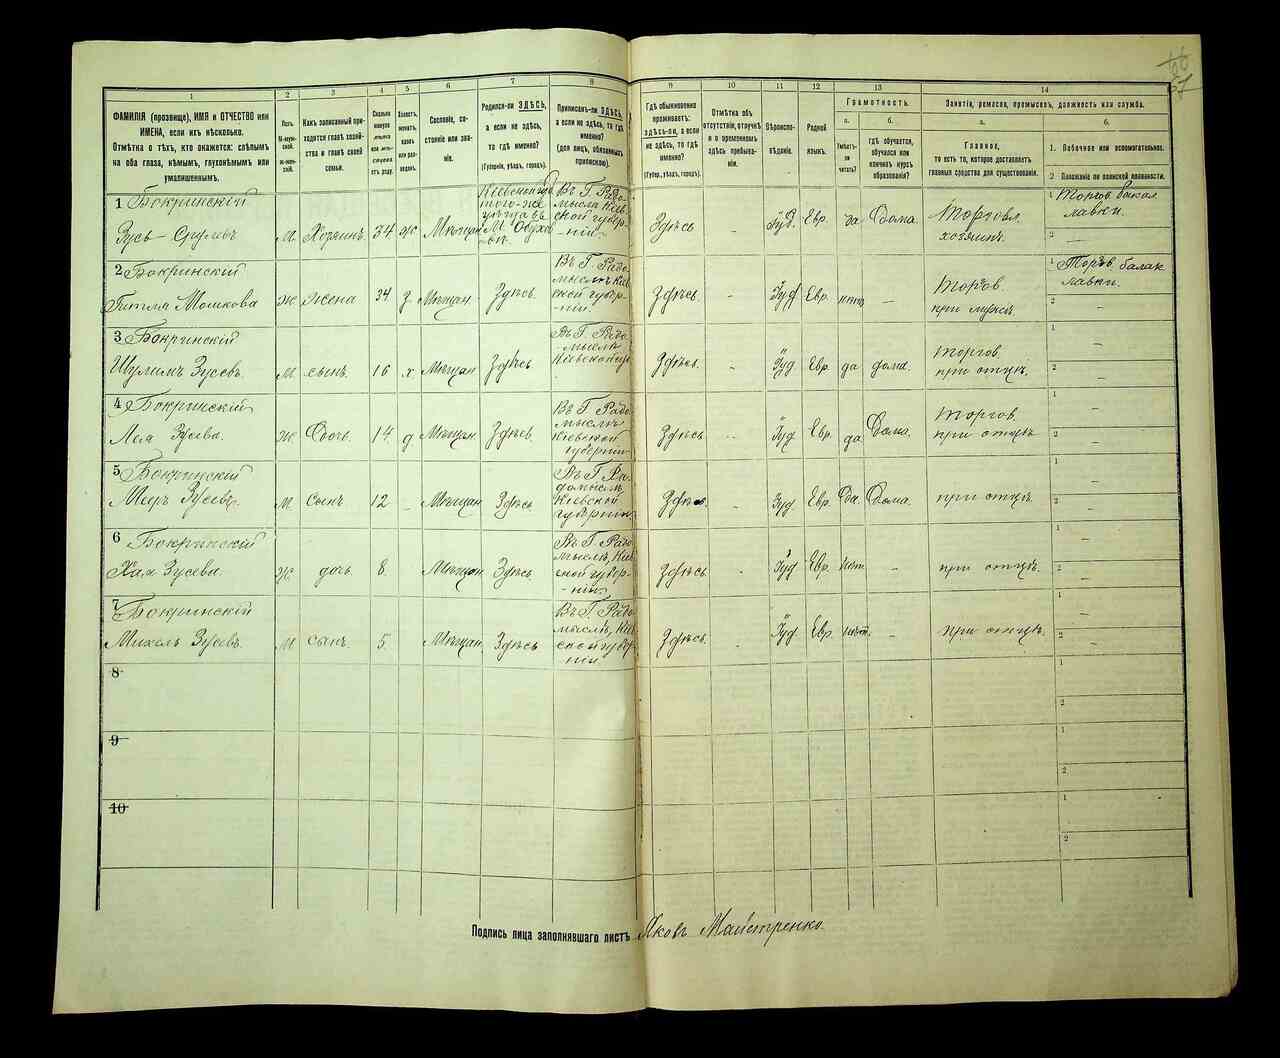 1 2 3 4 5 6 7 8 9 10 11 12 13 14
ФАМИЛІЯ (прозвище), ИМЯ и ОТЧЕСТВО или
ИМЕНА, если ихъ нѣсколько.
Отмѣтка о тѣхъ, кто окажется: слѣпымъ
на оба глаза, нѣмымъ, глухонѣмымъ или
умалишеннымъ.
Полъ.
Какъ записанный при-
ходится главѣ хозяй-
ства и главѣ своей
семьи.
Сословіе, со-
стояніе или зва-
ніе.
Родился-ли ЗДѢСЬ,
а если не здѣсь,
то гдѣ именно?
(Губернія, уѣздъ, городъ).
Приписанъ-ли ЗДѢСЬ,
а если не здѣсь, то гдѣ
именно?
(для лицъ, обязанныхъ
припискою).
Гдѣ обыкновенно
проживаетъ:
здѣсь-ли, а если
не здѣсь, то гдѣ
именно?
(Губер., уѣздъ, городъ).
Отмѣтка объ
отсутствіи, отлучкѣ
и о временномъ
здѣсь пребыва-
ніи.
Вѣроиспо-
вѣданіе.
Родной
языкъ.
Грамотность.
а.
Умѣетъ-
ли
читать?
б.
гдѣ обучается,
обучался или
кончилъ курсъ
образованія?
Занятія, ремесло, промыселъ, должность или служба.
а.
Главное,
то есть то, которое доставляетъ
главныя средства для существованія.
б.
1. Побочное или вспомогательное.
2 Положеніе по воинской повинности.
1 Бокринскій
Зусь-Срулевъ М. Хозяинъ 34 Мѣщан Здѣсь - Іуд. Евр. да Дома. Торговл. хозяинъ. 1 Торгов. бакал лавки. 2 -
2 Бокринскій
Гитля Мошкова Ж Жена 34 з Мѣщан Здѣсь. Въ Г. Радо-
мыслѣ Кіев-
ской губер-
ніи. Здѣсь. - Іуд Евр. нѣтъ - Торгов. при мужѣ. 1 Торгов. бакал лавки. 2 -
3 Бокринскій
Шулимъ Зусевъ. М сынъ. 16 х Мѣщан Здѣсь Въ Г. Радо-
мыслѣ
Здѣсь. - Іуд Евр. да дома. Торгов. при отцѣ. 1 - 2 -
4 Бокринскій
Лея Зусева. Ж Дочь. 14. д Мѣщан. Здѣсь. Въ Г. Радо-
мыслѣ
Кіевской
губерніи Здѣсь - Іуд Евр. да Дома. Торгов. при отцѣ 1 - 2 -
5 Бокринскій
Меръ Зусевъ. М. Сынъ 12 - Мѣщан Здѣсь Въ Г. Ра-
домыслѣ,
Кіевской
губерніи Здѣсь. - Іуд Евр. Да. Дома. при отцѣ 1 - 2 -
6 Бокринскій
Хая Зусева. Ж. дочь. 8. Мѣщан Здѣсь Въ Г. Радо-
мыслѣ, Кіев-
ской губер-
ніи. Здѣсь. - Іуд Евр. Нѣт. - при отцѣ. 1 - 2 -
7 Бокринскій
Михель Зусевъ. М сынъ. 5. Мѣщан, Здѣсь Въ Г. Радо-
мыслѣ, Кіев-
ской губер-
ніи. Здѣсь. - Іуд Евр нѣт. при отцѣ. 1 - 2 -
8 1 2
9 1 2
10 1 2
Подпись лица заполнявшаго листъ Яковъ Майстренко.